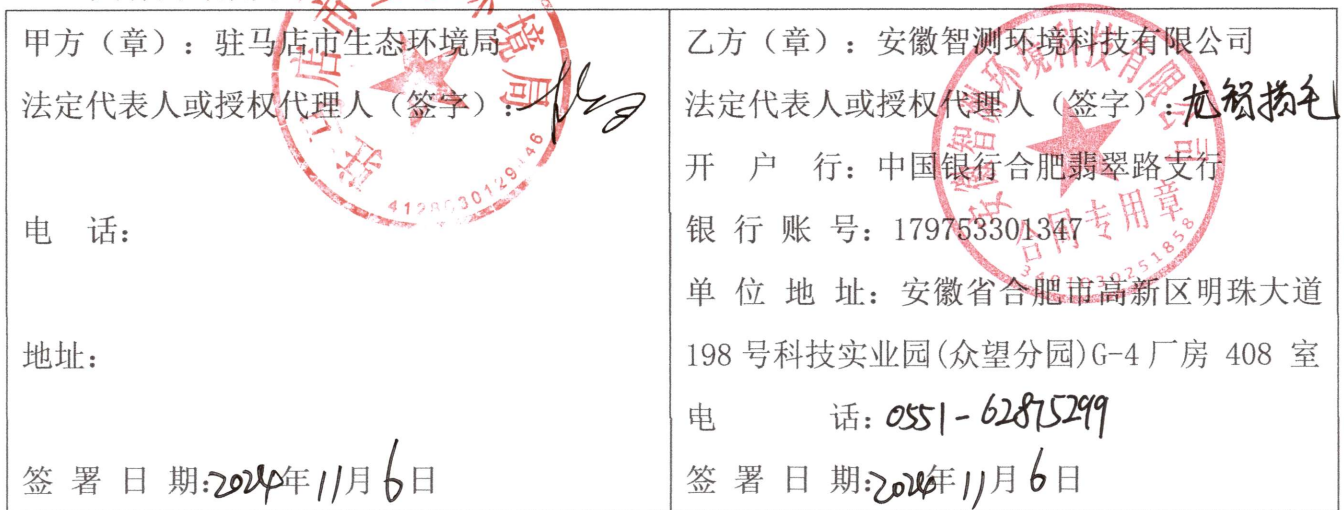 甲方（章）：驻马店市生态环境局
法定代表人或授权代理人（签字）：
电 话：
地址：
签 署 日 期：2024年11月6日
乙方（章）：安徽智测环境科技有限公司
法定代表人或授权代理人（签字）：
开 户 行：中国银行合肥翡翠路支行
银 行 账 号：179753301347
单 位 地 址：安徽省合肥市高新区明珠大道
198号科技实业园(众望分园)G-4厂房 408 室
电 话：0551-62875299
签 署 日 期：2024年11月6日
安徽智测环境科技有限公司
合同专用章
3401030251858